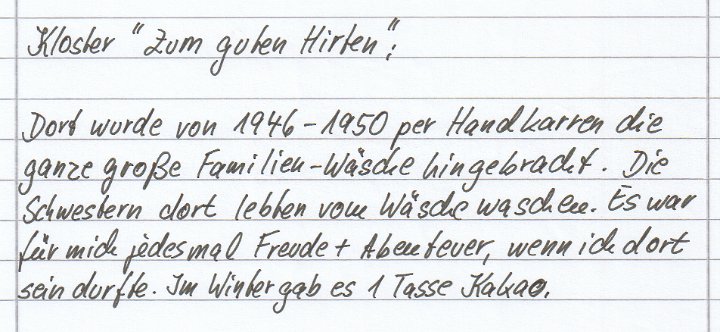 Kloster "Zum guten Hirten":
Dort wurde von 1946-1950 per Handkarren die
ganze große Familien-Wäsche hingebracht. Die
Schwestern dort lebten vom Wäsche waschen. Es war
für mich jedesmal Freude + Abenteuer, wenn ich dort
sein durfte. Im Winter gab es 1 Tasse Kakao.